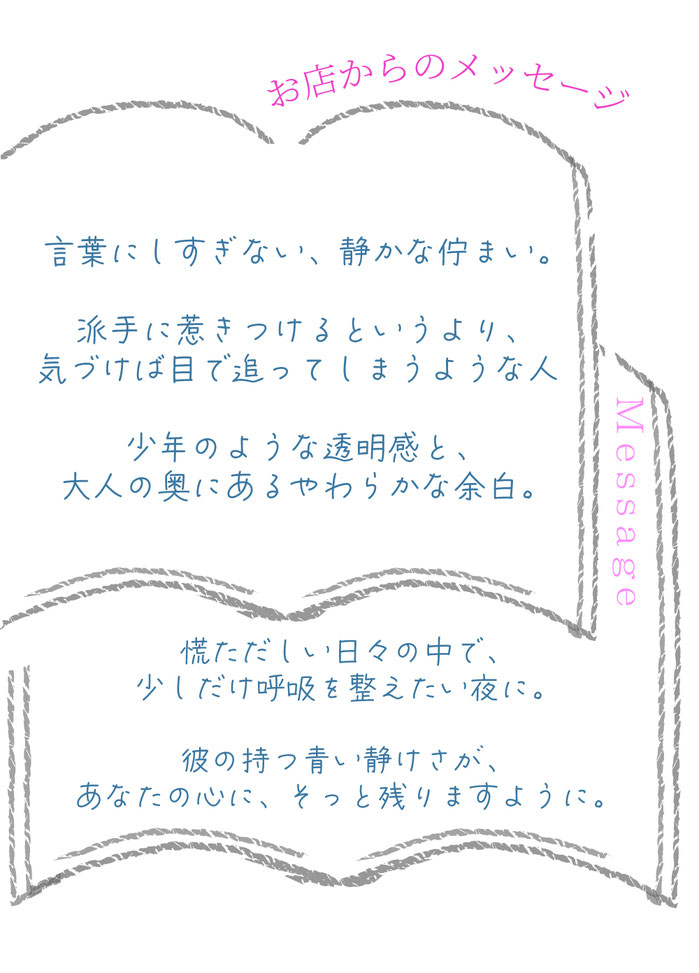 お店からのメッセージ
言葉にしすぎない、静かな佇まい。
派手に惹きつけるというより、
気づけば目で追ってしまうような人
少年のような透明感と、
大人の奥にあるやわらかな余白。
Message
慌ただしい日々の中で、
少しだけ呼吸を整えたい夜に。
彼の持つ青い静けさが、
あなたの心に、そっと残りますように。